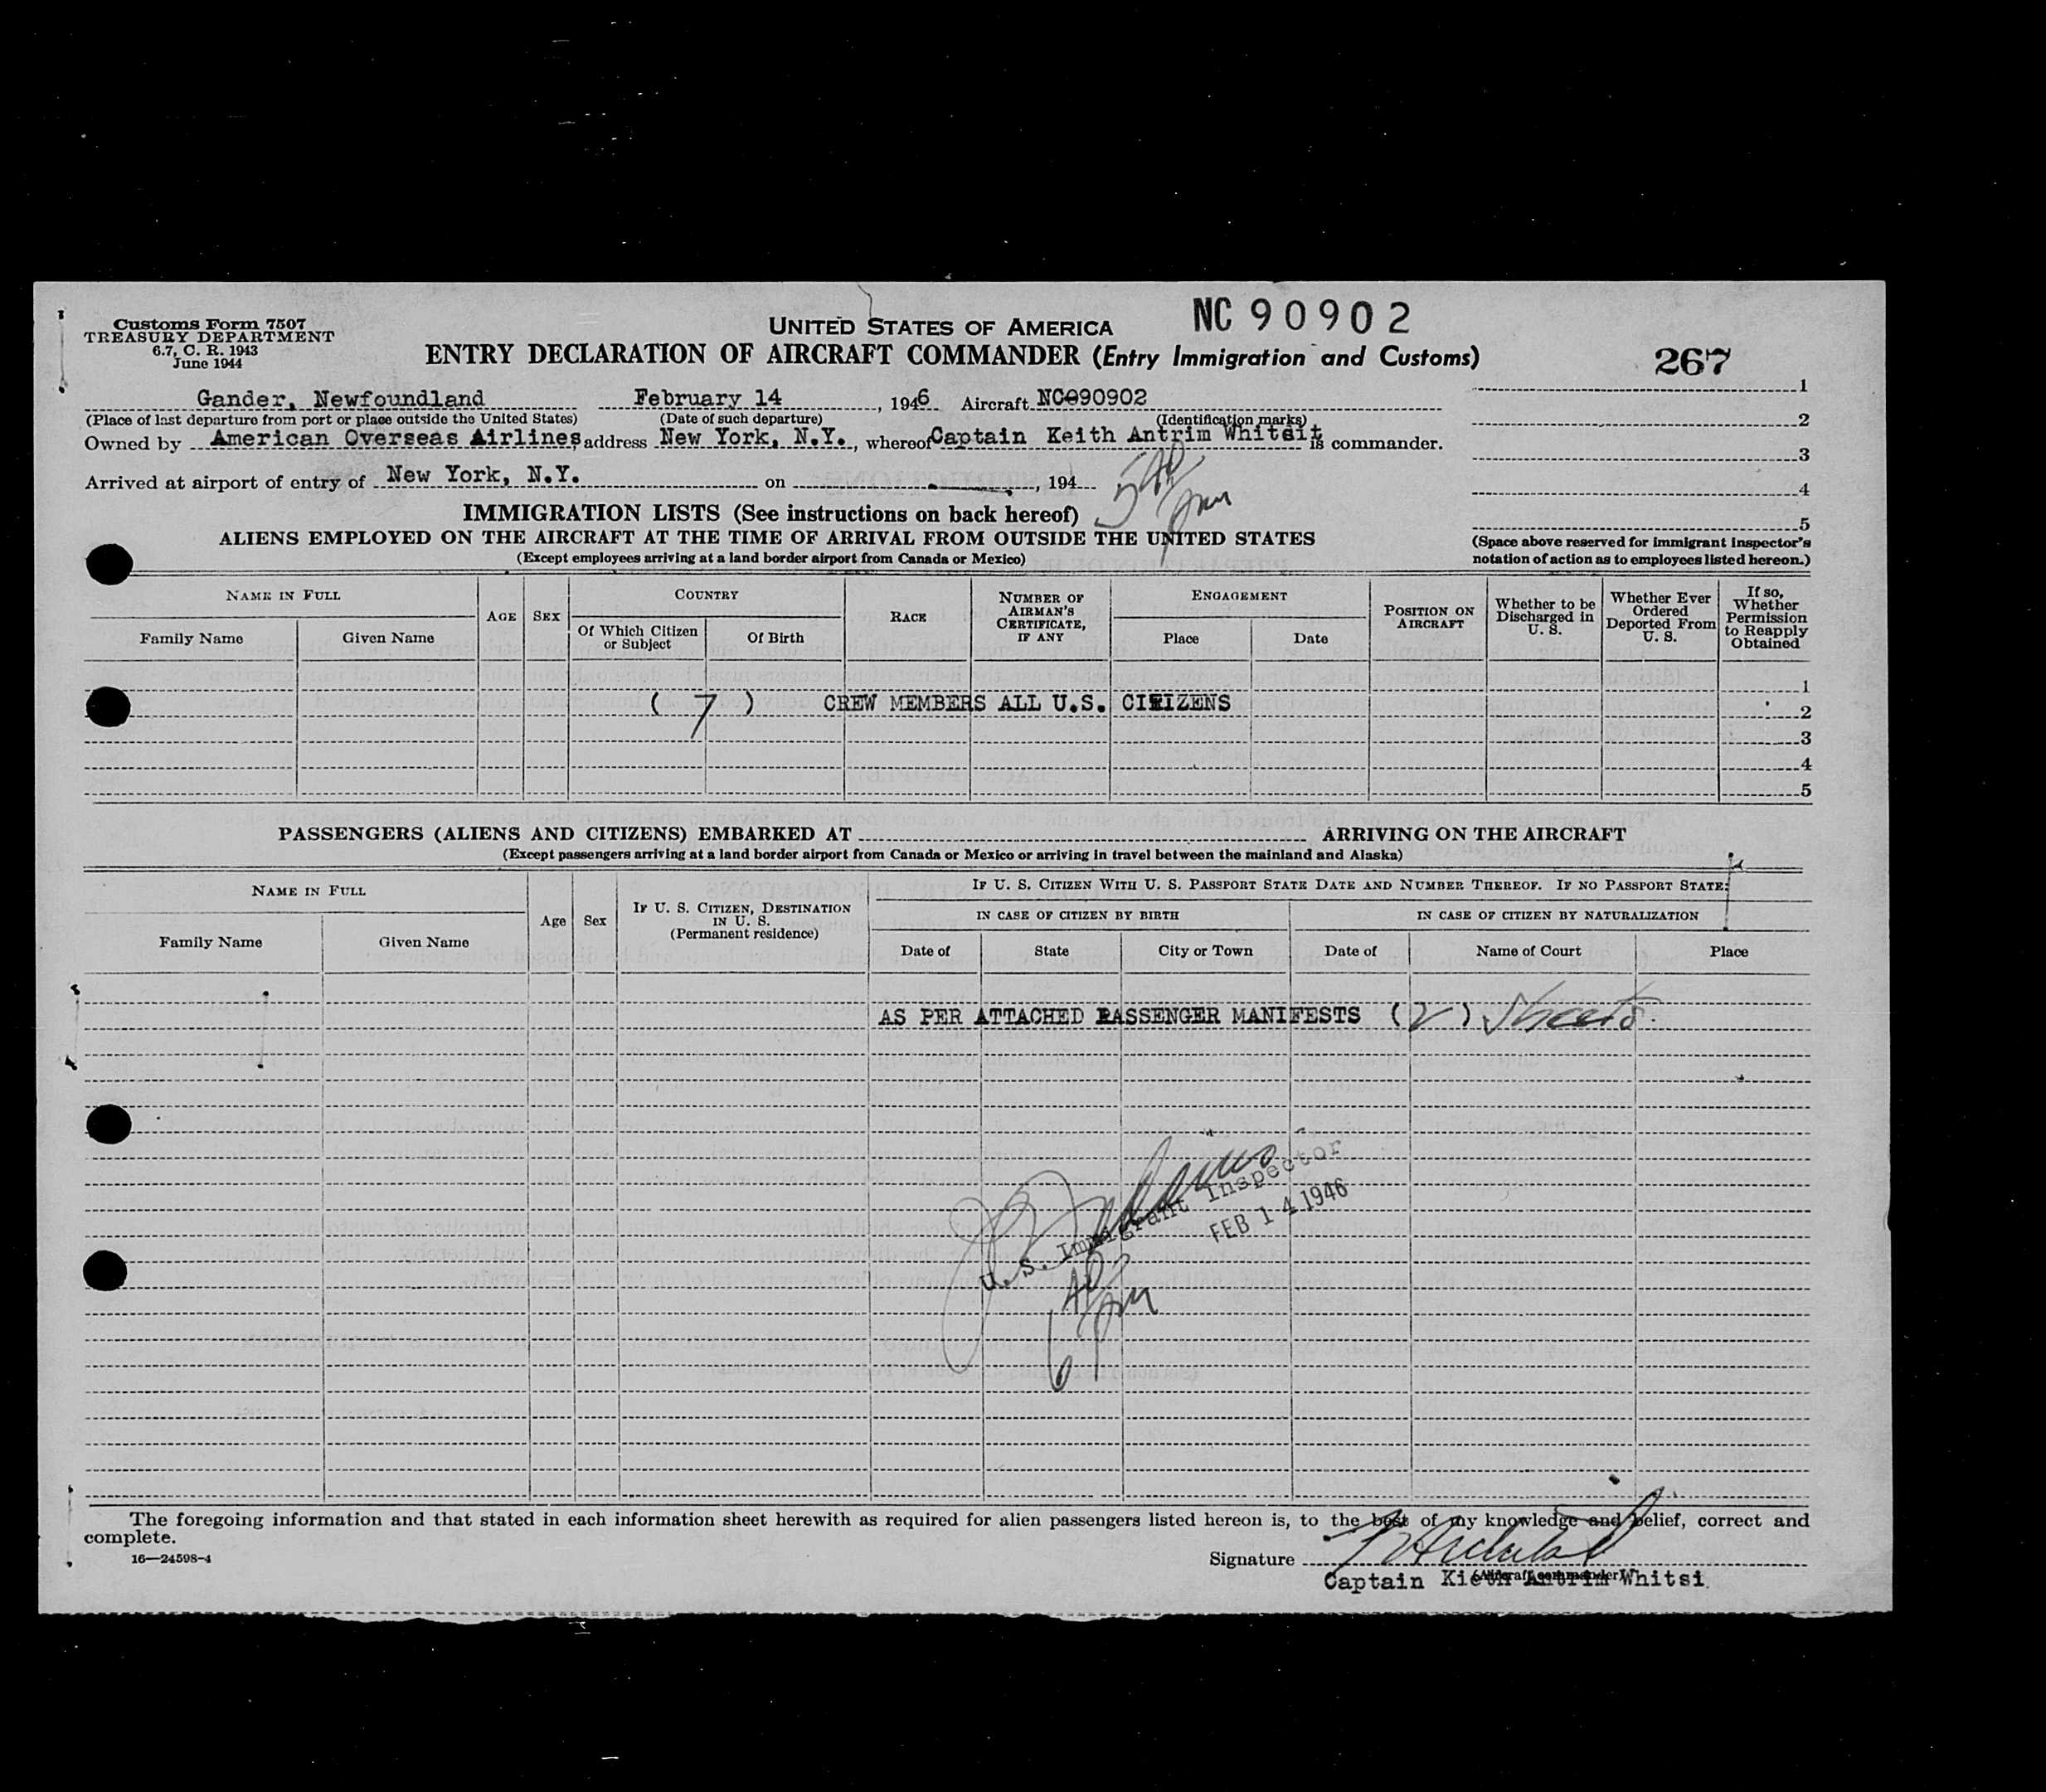 Customs Form 7507
TREASURY DEPARTMENT
6.7, C. R. 1943
June 1944
UNITED STATES OF AMERICA
NC 90902
ENTRY DECLARATION OF AIRCRAFT COMMANDER (Entry Immigration and Customs)
267
Gander, Newfoundland February 14, 1946 Aircraft NC090902
(Place of last departure from port or place outside the United States) (Date of such departure) (Identification marks)
Owned by American Overseas Airlines, address New York, N.Y., whereof Captain Keith Antrim Whitsit is commander.
Arrived at airport of entry of New York, N.Y. on , 194
540 pm
1
2
3
4
5
(Space above reserved for immigrant inspector's
notation of action as to employees listed hereon.)
IMMIGRATION LISTS (See instructions on back hereof)
ALIENS EMPLOYED ON THE AIRCRAFT AT THE TIME OF ARRIVAL FROM OUTSIDE THE UNITED STATES
(Except employees arriving at a land border airport from Canada or Mexico)
NAME IN FULL
Family Name
Given Name
AGE
SEX
COUNTRY
Of Which Citizen
or Subject
Of Birth
RACE
NUMBER OF
AIRMAN'S
CERTIFICATE,
IF ANY
ENGAGEMENT
Place
Date
POSITION ON
AIRCRAFT
Whether to be
Discharged in
U. S.
Whether Ever
Ordered
Deported From
U. S.
If so,
Whether
Permission
to Reapply
Obtained
1
( 7 ) CREW MEMBERS ALL U.S. CITIZENS
2
3
4
5
PASSENGERS (ALIENS AND CITIZENS) EMBARKED AT ARRIVING ON THE AIRCRAFT
(Except passengers arriving at a land border airport from Canada or Mexico or arriving in travel between the mainland and Alaska)
NAME IN FULL
Family Name
Given Name
Age
Sex
IF U. S. CITIZEN, DESTINATION
IN U. S.
(Permanent residence)
IF U. S. CITIZEN WITH U. S. PASSPORT STATE DATE AND NUMBER THEREOF. IF NO PASSPORT STATE:
IN CASE OF CITIZEN BY BIRTH
IN CASE OF CITIZEN BY NATURALIZATION
Date of
State
City or Town
Date of
Name of Court
Place
AS PER ATTACHED PASSENGER MANIFESTS (2) Sheets.
U. S. Immigrant Inspector
FEB 14 1946
640 pm
The foregoing information and that stated in each information sheet herewith as required for alien passengers listed hereon is, to the best of my knowledge and belief, correct and
complete.
16—24598-4
Signature
(Aircraft commander)
Captain Kieth Antrim Whitsi